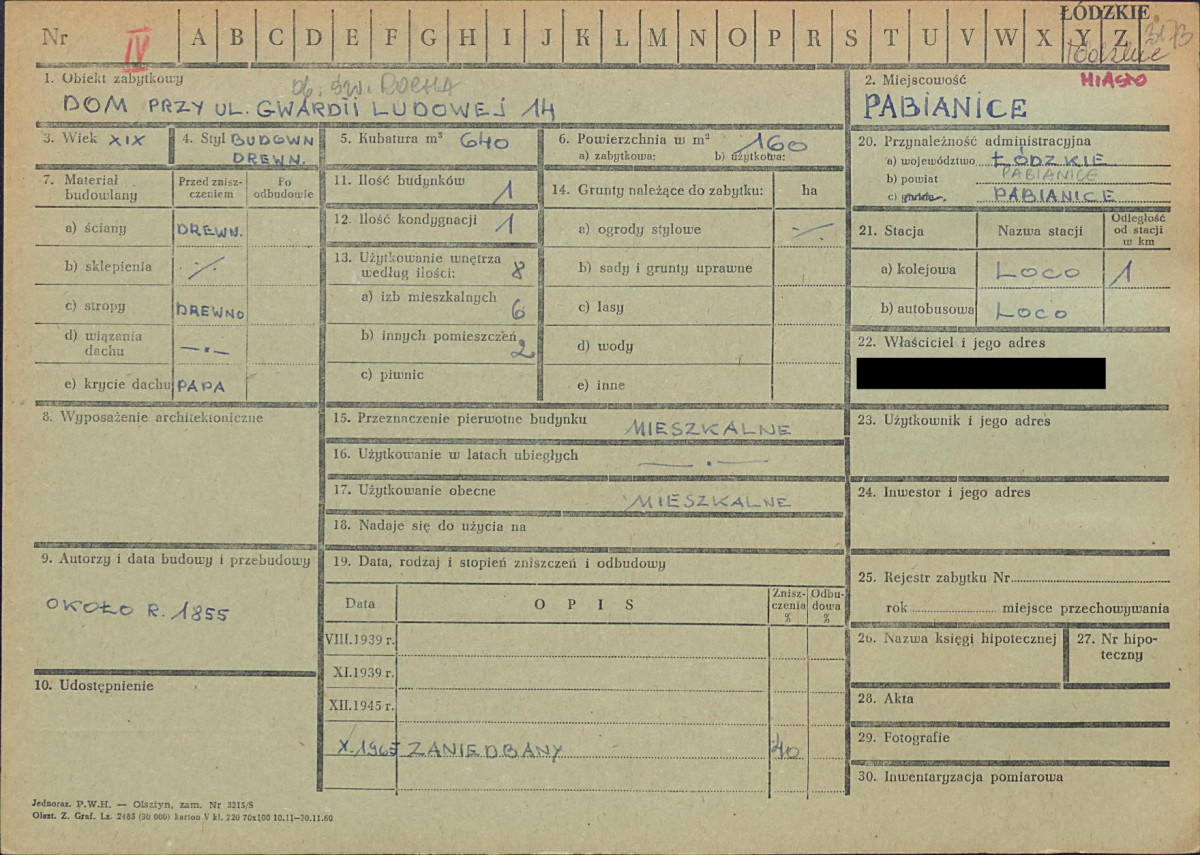 Nr IV A B C D E F G H I J K L M N O P R S T U V W X Y Z
ŁÓDZKIE
łódzkie
1. Obiekt zabytkowy
ob. ŚW. ROCHA
DOM PRZY UL. GWARDII LUDOWEJ 14
2. Miejscowość MIASTO
PABIANICE
3. Wiek XIX
4. Styl BUDOWN
DREWN.
5. Kubatura m³ 640
6. Powierzchnia w m² 160
a) zabytkowa: b) użytkowa:
7. Materiał budowlany
Przed zniszczeniem
Po odbudowie
a) ściany DREWN.
b) sklepienia ·/·
c) stropy DREWNO
d) wiązania dachu —·—
e) krycie dachu PAPA
8. Wyposażenie architektoniczne
9. Autorzy i data budowy i przebudowy
OKOŁO R. 1855
10. Udostępnienie
11. Ilość budynków 1
12. Ilość kondygnacji 1
13. Użytkowanie wnętrza według ilości: 8
a) izb mieszkalnych 6
b) innych pomieszczeń 2
c) piwnic
14. Grunty należące do zabytku: ha
a) ogrody stylowe ·/·
b) sady i grunty uprawne
c) lasy
d) wody
e) inne
15. Przeznaczenie pierwotne budynku MIESZKALNE
16. Użytkowanie w latach ubiegłych —·—
17. Użytkowanie obecne MIESZKALNE
18. Nadaje się do użycia na
19. Data, rodzaj i stopień zniszczeń i odbudowy
Data OPIS Zniszczenia % Odbudowa %
VIII.1939 r.
XI.1939 r.
XII.1945 r.
X.1967 ZANIEDBANY 40
20. Przynależność administracyjna
a) województwo ŁÓDZKIE
b) powiat PABIANICE
c) PABIANICE
21. Stacja Nazwa stacji Odległość od stacji w km
a) kolejowa LOCO 1
b) autobusowa LOCO
22. Właściciel i jego adres
23. Użytkownik i jego adres
24. Inwestor i jego adres
25. Rejestr zabytku Nr
rok miejsce przechowywania
26. Nazwa księgi hipotecznej
27. Nr hipoteczny
28. Akta
29. Fotografie
30. Inwentaryzacja pomiarowa
Jednoraz. P.W.H. — Olsztyn, zam. Nr 3215/S
Olszt. Z. Graf. Lz. 2483 (30 000) karton V kl. 220 70x100 10.11—30.11.60